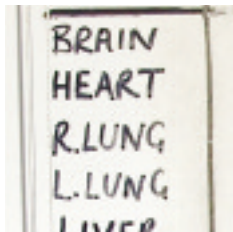 BRAIN
HEART
R.LUNG
L.LUNG
LIVER